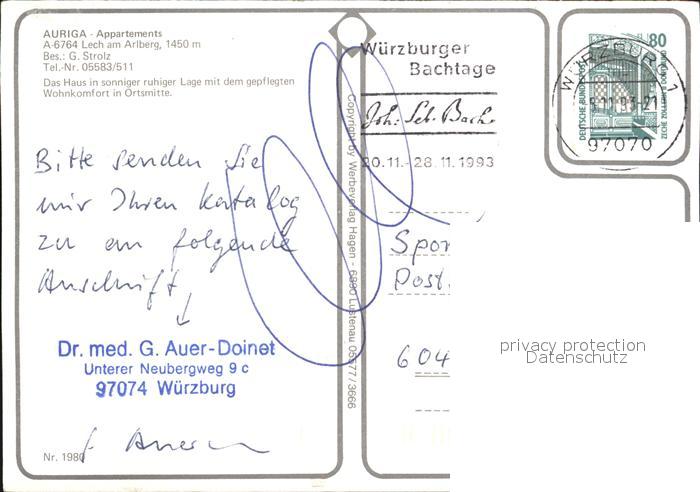 AURIGA - Appartements
A-6764 Lech am Arlberg, 1450 m
Bes.: G. Strolz
Tel.-Nr. 05583/511
Das Haus in sonniger ruhiger Lage mit dem gepflegten
Wohnkomfort in Ortsmitte.
Bitte senden Sie
mir Ihren Katalog
zu an folgende
Anschrift
Dr. med. G. Auer-Doinet
Unterer Neubergweg 9 c
97074 Würzburg
Nr. 1980
Copyright by Werbeverlag Hagen - 6890 Lustenau 05577/3666
Würzburger
Bachtage
Joh. Seb. Bach
20.11.- 28.11.1993
WÜRZBURG 1
97070
80
DEUTSCHE BUNDESPOST
ZECHE ZOLLERN II DORTMUND
Spor
Post.
604
privacy protection
Datenschutz